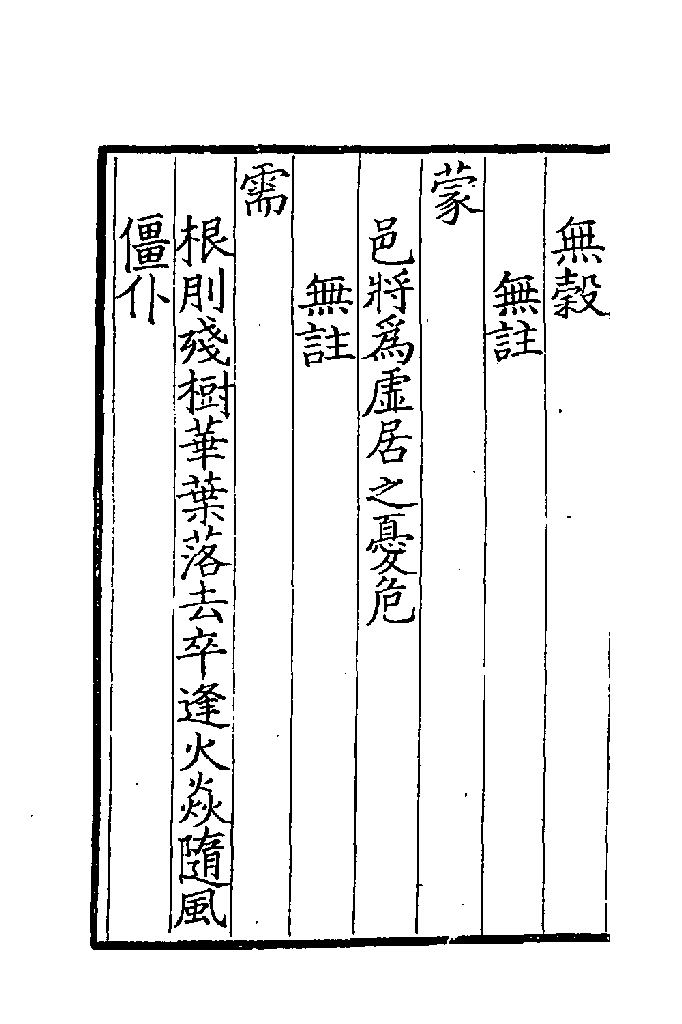 無穀
無註
蒙
邑將爲虛居之憂危
無註
需
根刖殘樹華葉落去卒逢火焱隨風
僵仆